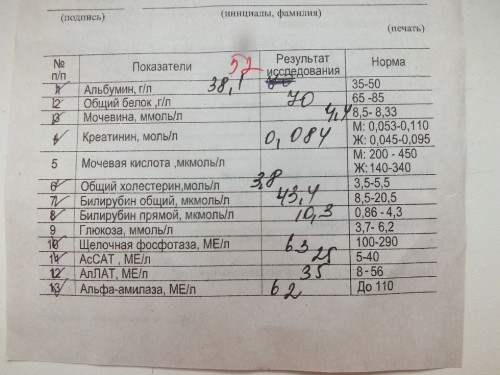 (подпись) (инициалы, фамилия)
(печать)
№ п/п Показатели 52 Результат исследования Норма
1 Альбумин, г/л 38,1 35-50
2 Общий белок ,г/л 70 65 -85
3 Мочевина, ммоль/л 4,4 8,5- 8,33
4 Креатинин, моль/л 0,084 М: 0,053-0,110
Ж: 0,045-0,095
5 Мочевая кислота ,мкмоль/л М: 200 - 450
Ж: 140-340
6 Общий холестерин,моль/л 3,8 3,5-5,5
7 Билирубин общий, мкмоль/л 43,4 8,5-20,5
8 Билирубин прямой, мкмоль/л 10,3 0,86 - 4,3
9 Глюкоза, ммоль/л 3,7- 6,2
10 Щелочная фосфотаза, МЕ/л 63 100-290
11 АсСАТ , МЕ/л 25 5-40
12 АлЛАТ, МЕ/л 35 8 - 56
13 Альфа-амилаза, МЕ/л 62 До 110